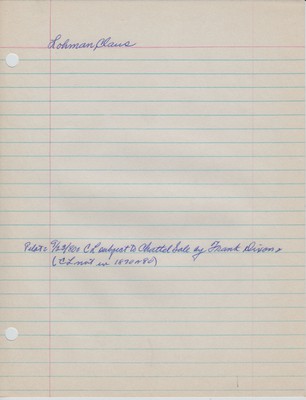 Lohman, Claus
9/23/80 CL subject to Chattel Sale by Frank Dixon
(CL not in 1870 N 80)